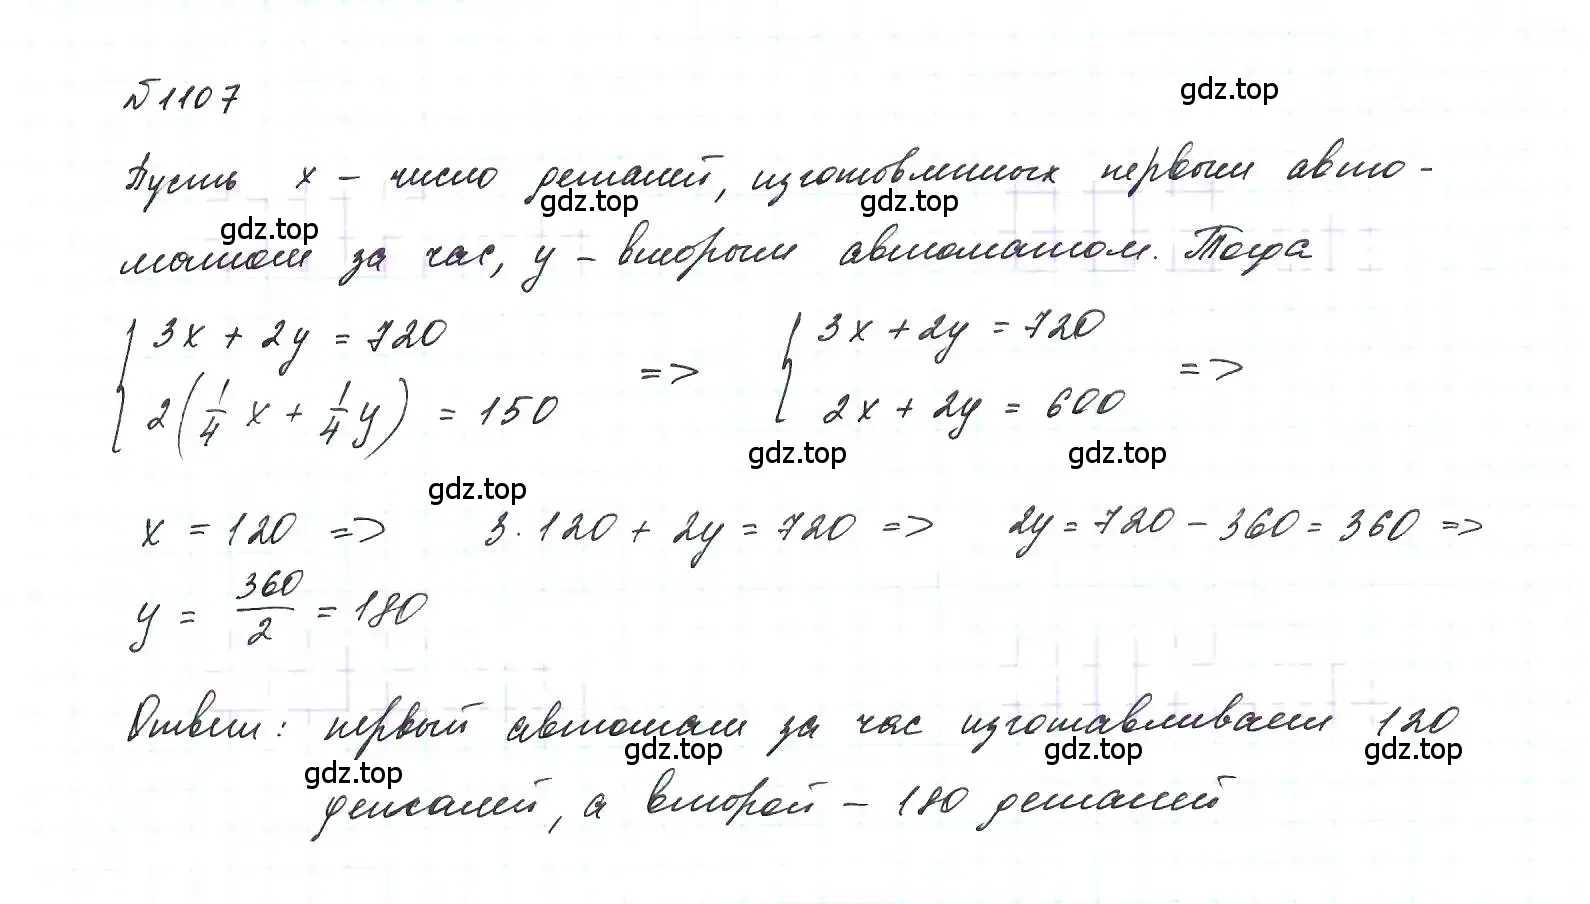 №1107
gdz.top
Пусть x – число деталей, изготовленных первым авто-
gdz.top gdz.top gdz.top
матом за час, y – вторым автоматом. Тогда
{ 3x + 2y = 720 => { 3x + 2y = 720 =>
{ 2(1/4 x + 1/4 y) = 150 { 2x + 2y = 600
gdz.top gdz.top
gdz.top
x = 120 => 3·120 + 2y = 720 => 2y = 720 – 360 = 360 =>
y = 360/2 = 180
Ответ: первый автомат за час изготавливает 120
gdz.top gdz.top gdz.top gdz.top
деталей, а второй – 180 деталей